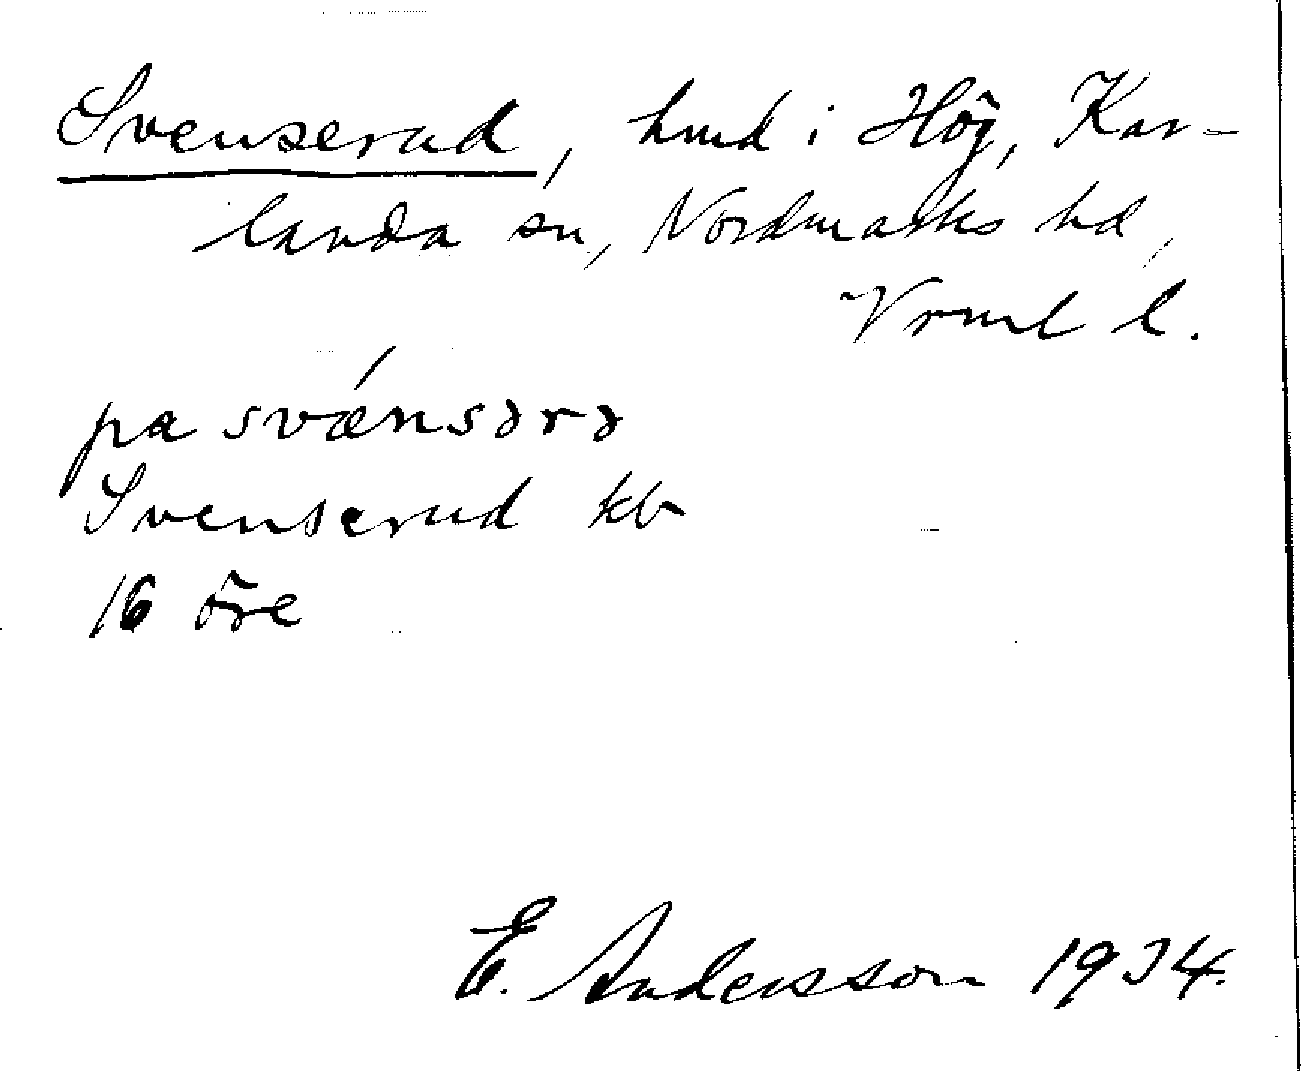 Svenserud, hmd i Hög, Kar-
landa sn, Nordmarks hd,
Vrml l.
pa svænsərə
Svenserud kb
16 öre
E. Andersson 1934.